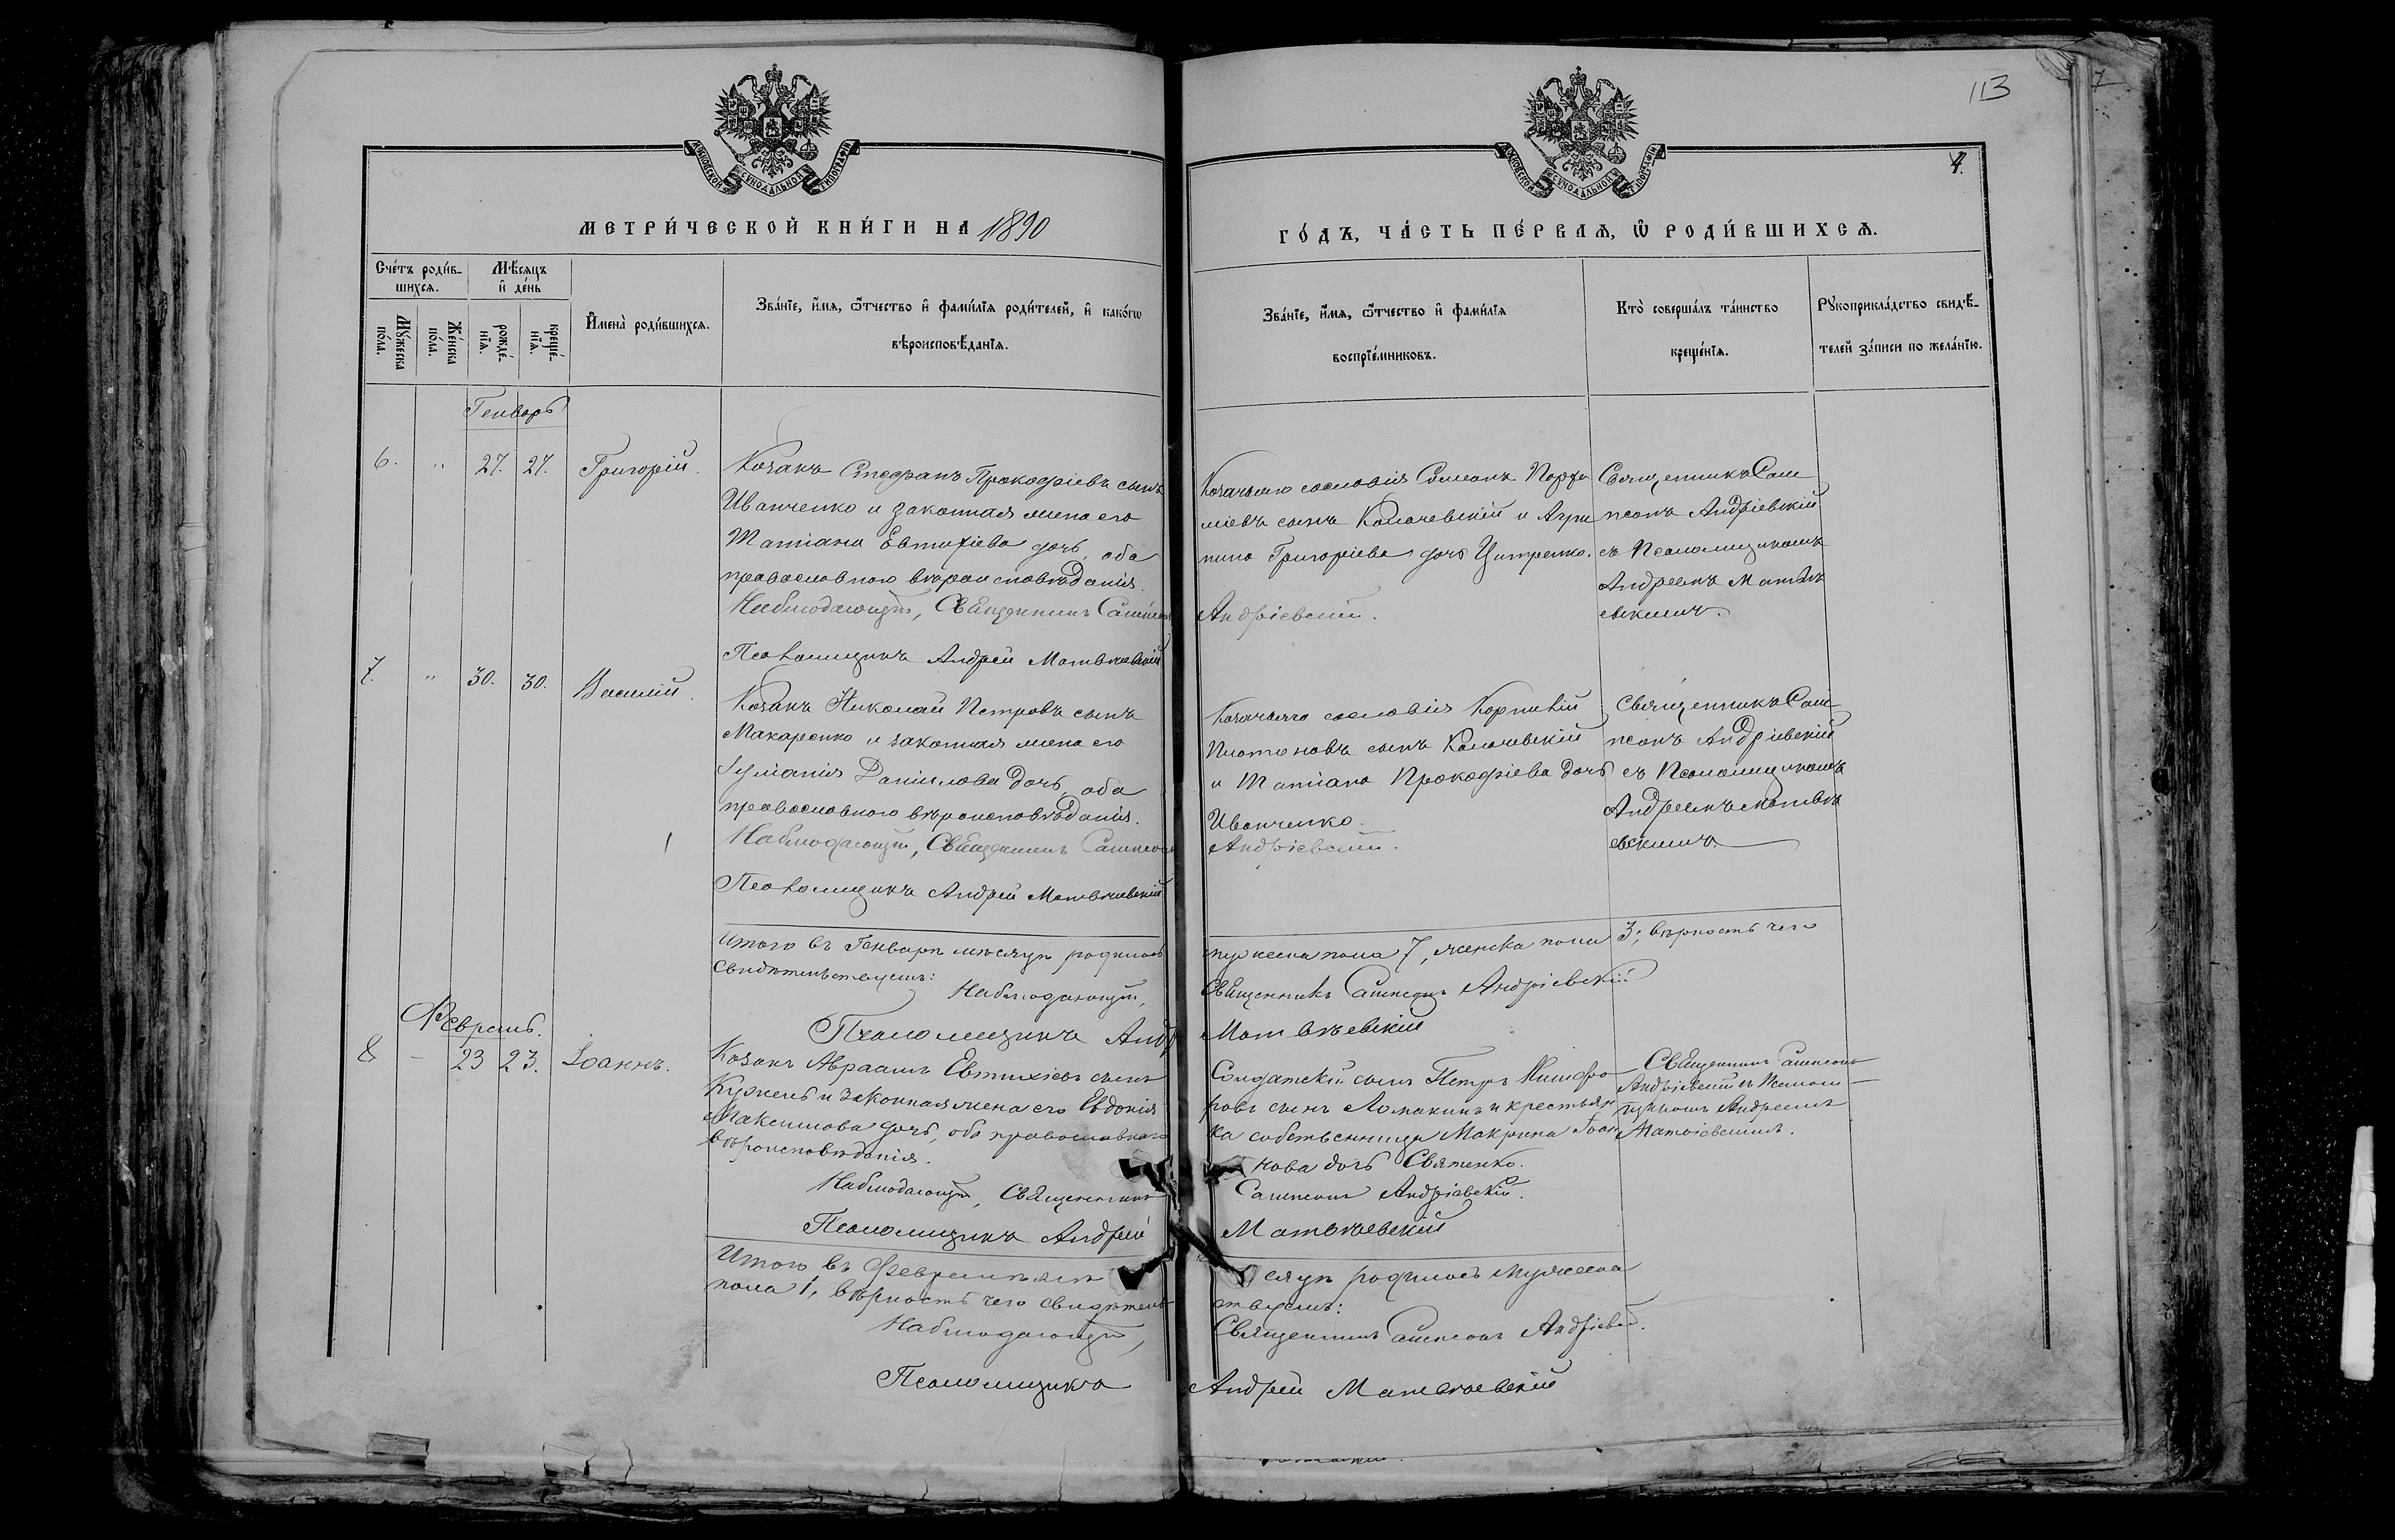 113
7
4.
МОСКОВСКОЙ СѴНОДАЛЬНОЙ ТИПОГРАФІИ
МОСКОВСКОЙ СѴНОДАЛЬНОЙ ТИПОГРАФІИ
МЕТРИ́ЧЕСКОЙ КНИ́ГИ НА 1890
ГО́ДЪ, ЧА́СТЬ ПЕ́РВАѦ, Ѡ РОДИ́ВШИХСѦ.
Сче́тъ роди́в-
шихсѧ.
Мѣ́сѧцъ
и де́нь
Мꙋ́жеска
по́ла.
Же́нска
по́ла.
рожде́-
нїѧ.
креще́-
нїѧ.
И҆мена̀ роди́вшихсѧ.
Зва́нїе, и҆́мѧ, ѻ҆́тчество и҆ фами́лїѧ роди́телей, и҆ како́гѡ
вѣроисповѣ́данїѧ.
Зва́нїе, и҆́мѧ, ѻ҆́тчество и҆ фами́лїѧ
воспрїе́мниковъ.
Кто̀ соверша́лъ та́инство
креще́нїѧ.
Рꙋкоприкла́дство свидѣ́-
телей за́писи по жела́нїю.
Генварь
6. " 27. 27. Григорій.
Козакъ Стефанъ Прокофіевъ сынъ
Иванченко и законная жена его
Татіана Евтихіева дочь, оба
православного вѣроисповѣданія.
Наблюдающій, Священникъ Сампсонъ
Псаломщикъ Андрей Матвѣевскій
Козачьяго сословія Симеонъ Порфи
ліевъ сынъ Калачевскій и Агри
пина Григоріева дочь
Андріевскій.
Священникъ Сам
псонъ Андріевскій
съ Псаломщикомъ
Андреемъ Матвѣ
евскимъ.
7. " 30. 30. Василій.
Козакъ Николай Петровъ сынъ
Макаренко и законная жена его
Іуліанія Даніилова дочь, оба
православного вѣроисповѣданія.
Наблюдающій, Священникъ Сампсонъ
Псаломщикъ Андрей Матвѣевскій
Козачьяго сословія Корнилій
Платоновъ сынъ Калачевскій
и Татіана Прокофіева дочь
Иванченко.
Андріевскій.
Священникъ Сам
псонъ Андріевскій
съ Псаломщикомъ
Андреемъ Матвѣ
евскимъ.
Итого въ Генварѣ мѣсяцѣ родилось
мужеска пола 7, женска пола 3; вѣрность чего
свидѣтельствуемъ:
Наблюдающій,
Священникъ Сампсонъ Андріевскій
Псаломщикъ Андр
Матвѣевскій
Февраль.
8 – 23 23. Іоаннъ.
Козакъ Авраамъ Евтихіевъ сынъ
Кужель и законная жена его Евдокія
Максимова дочь, оба православного
вѣроисповѣданія.
Наблюдающій, Священникъ
Псаломщикъ Андрей
Солдатскій сынъ Петръ Никифо
ровъ сынъ Ломакинъ и крестьян
ка собственница Макрина Іоан
нова дочь Святенко.
Сампсонъ Андріевскій.
Матвѣевскій
Священникъ Сампсонъ
Андріевскій съ Псалом
щикомъ Андреемъ
Матвіевскимъ.
Итого въ Февралѣ мѣ
сяцѣ родилось мужеска
пола 1, вѣрность чего свидѣтель
ствуемъ:
Наблюдающій,
Священникъ Сампсонъ Андріевскій.
Псаломщикъ
Андрей Матвѣевскій